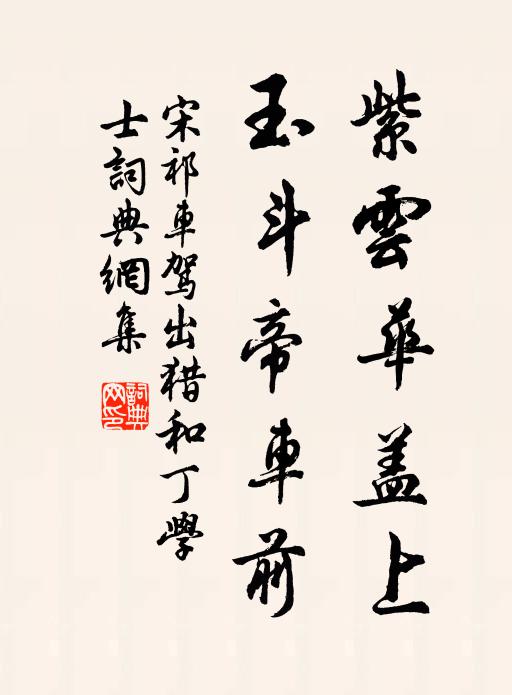 紫雲華蓋上
玉斗帝車前
宋祁車駕出猎和丁學
士詞典網集
詞典
网印